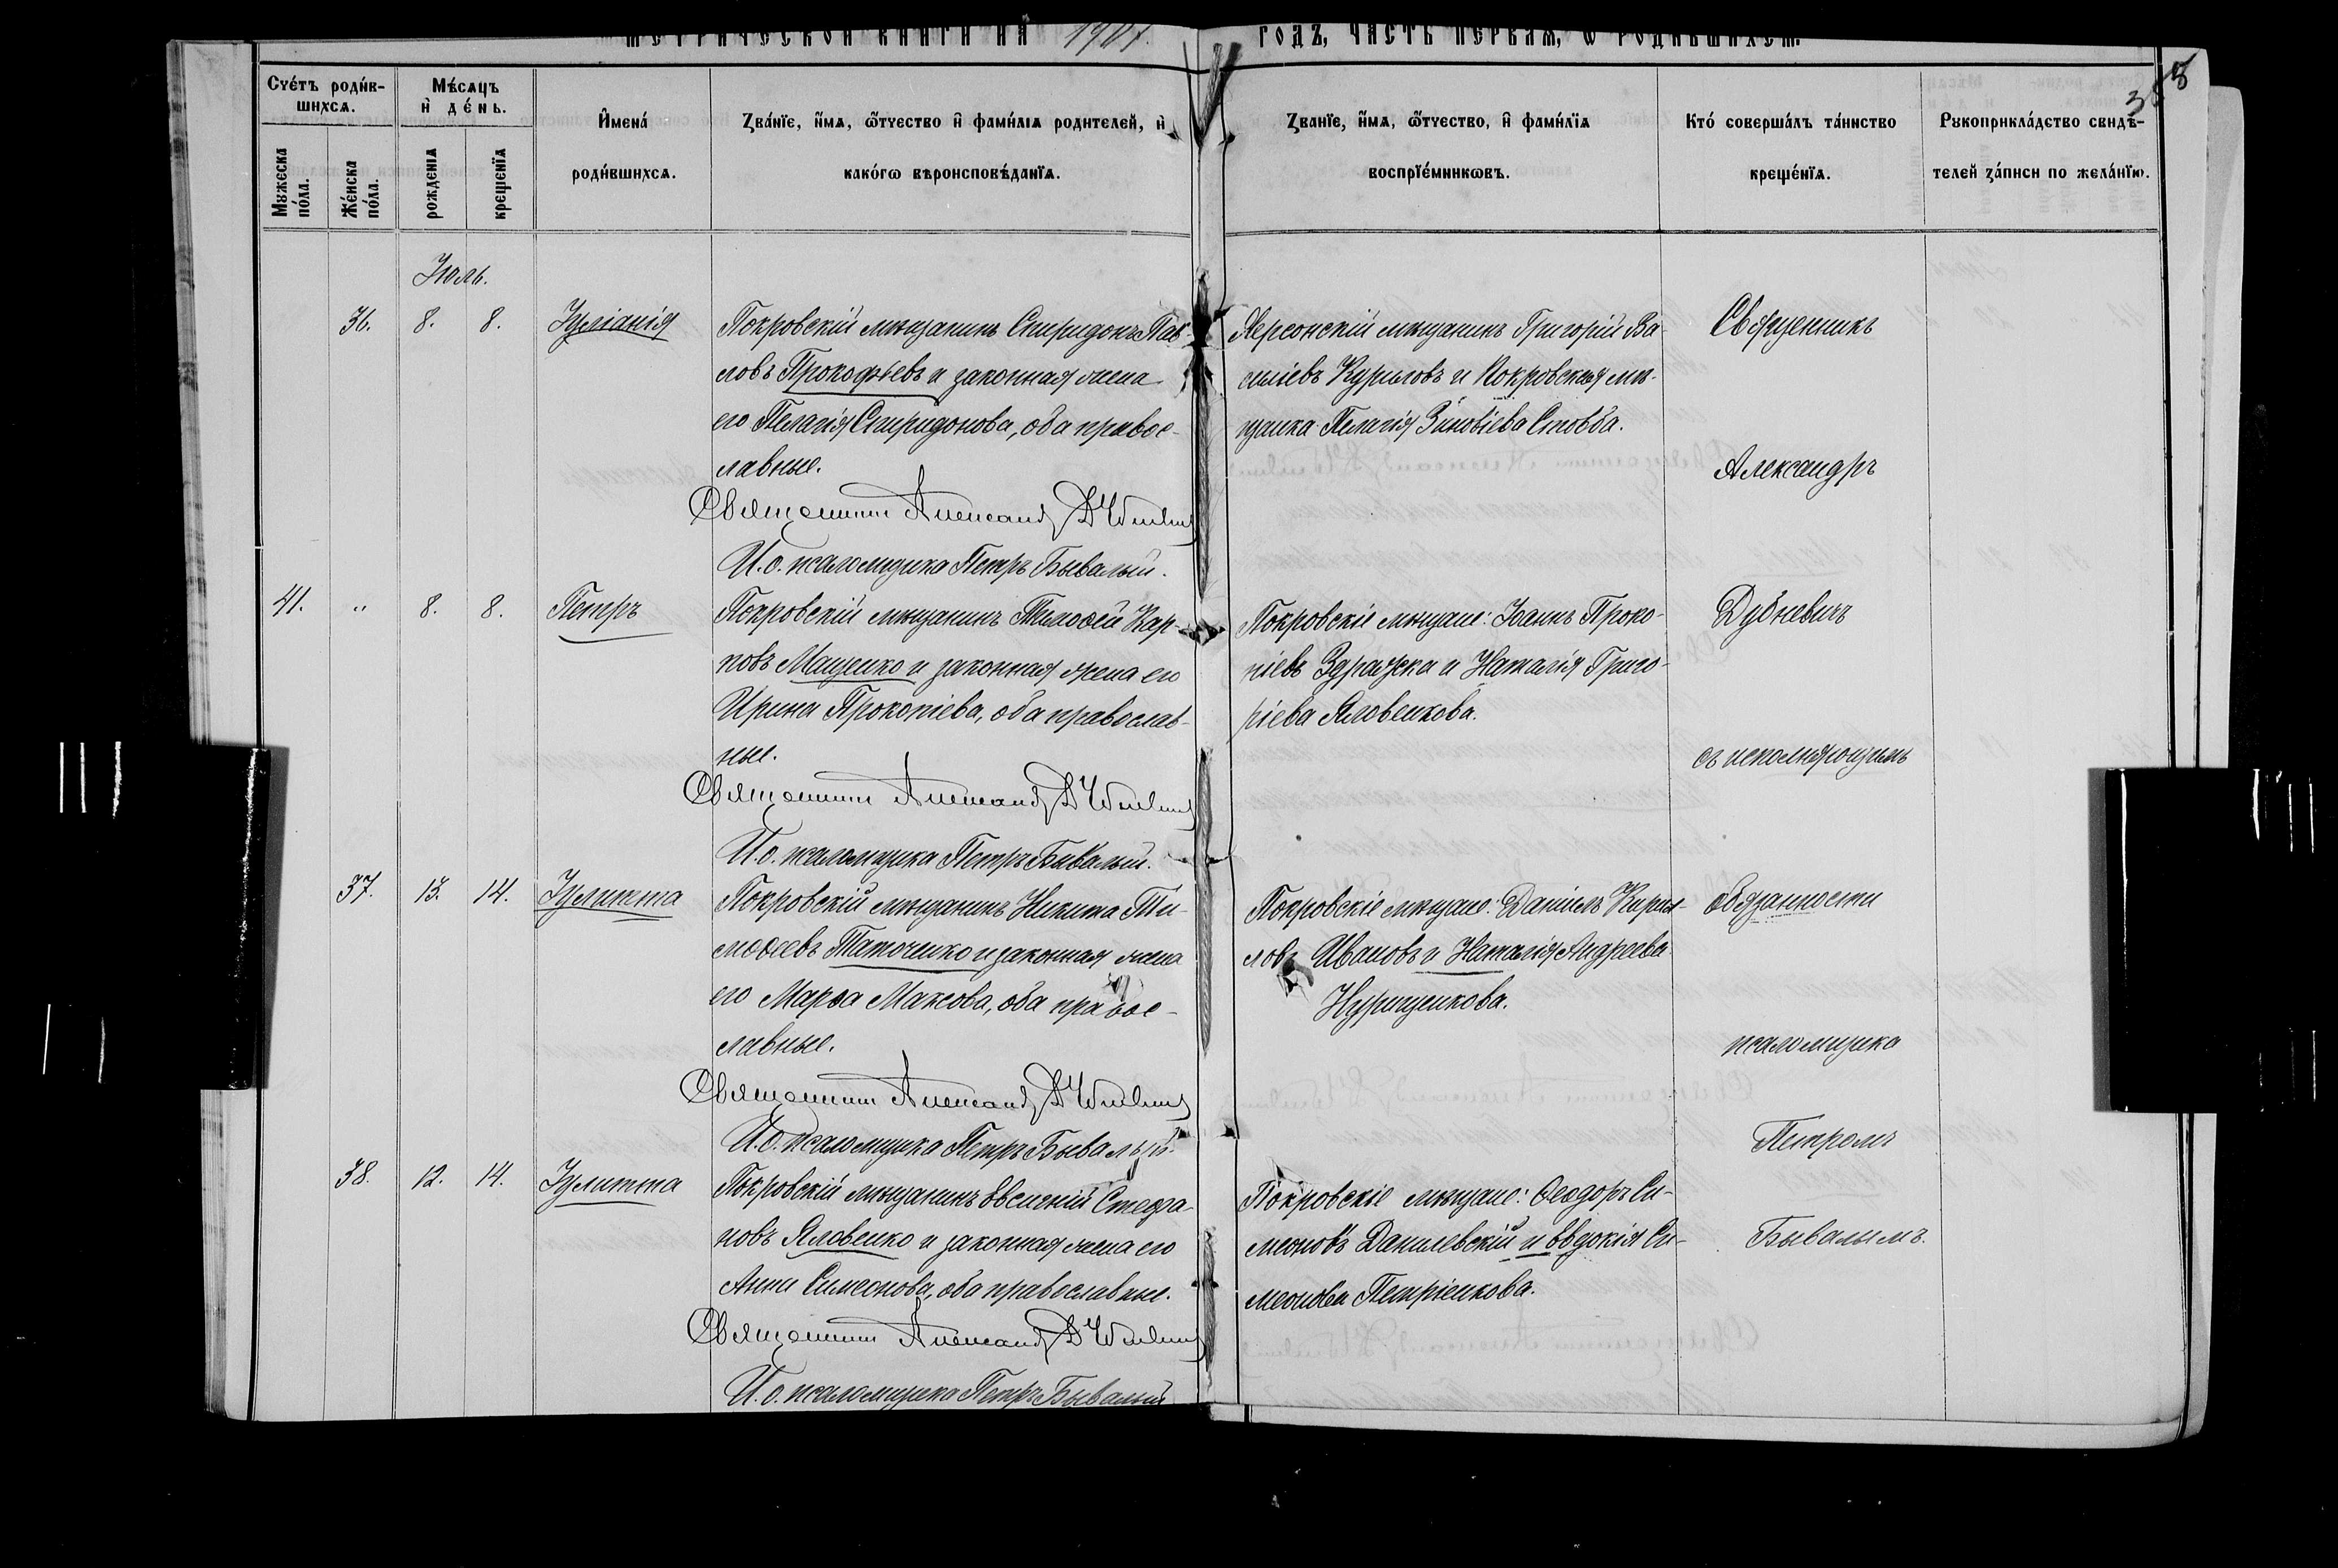 МЕТРИЧЕСКОЙ КНИГИ НА 1907.
ГОДЪ, ЧАСТЬ ПЕРВАЯ, Ѡ РОДИВШИХСЯ.
Счéтъ роди́в-
шихсѧ.
Мужеска
по́ла.
Же́нска
по́ла.
Мѣ́сѧцъ
и҆ де́нь.
рожденїѧ
крещенїѧ
И҆мена́
роди́вшихсѧ.
Зва́нїе, и҆́мѧ, ѻ҆́тчество и҆ фами́лїѧ родителей, и҆
како́гѡ вѣроисповѣ́данїѧ.
Званїе, и҆́мѧ, ѻ҆́тчество, и҆ фами́лїѧ
воспрїе́мникѡвъ.
Кто́ соверша́лъ та́инство
креще́нїѧ.
Рукоприкла́дство свидѣ́-
телей за́писи по жела́нїю.
Іюль.
36. 8. 8. Іуліанія
Покровскій мѣщанинъ Спиридонъ Пав-
ловъ Прокофьевъ и законная жена
его Пелагія Спиридонова, оба правос-
лавные.
Священникъ Александръ
И. о. псаломщика Петръ Бывалый.
Херсонскій мѣщанинъ Григорій Ва-
силіевъ Куриловъ и Покровская мѣ-
щанка Пелагія Зиновіева Стовба.
Священникъ
Александръ
Дубневичъ
съ исполняющимъ
обязанности
псаломщика
Петромъ
Бывалымъ.
41. " 8. 8. Петръ
Покровскій мѣщанинъ Тимоѳей Кар-
повъ Мащенко и законная жена его
Ирина Прокопіева, оба православ-
ные.
Священникъ Александръ
И. о. псаломщика Петръ Бывалый.
Покровскіе мѣщане: Іоаннъ Проко-
піевъ Здражка и Наталія Григо-
ріева Яловенкова.
37. 13. 14. Іулитта
Покровскій мѣщанинъ Никита Ти-
моѳеевъ Таточенко и законная жена
его Марѳа Максова, оба правос-
лавные.
Священникъ Александръ
И. о. псаломщика Петръ Бывалый.
Покровскіе мѣщане: Даніилъ Кирил-
ловъ Ивановъ и Наталія Андреева
Нурищенкова.
38. 12. 14. Іулитта
Покровскій мѣщанинъ Евсигній Стефа-
новъ Яловенко и законная жена его
Анна Симеонова, оба православные.
Священникъ Александръ
И. о. псаломщика Петръ Бывалый
Покровскіе мѣщане: Ѳеодоръ Си-
меоновъ Данилевскій и Евдокія Си-
меонова Петріенкова.